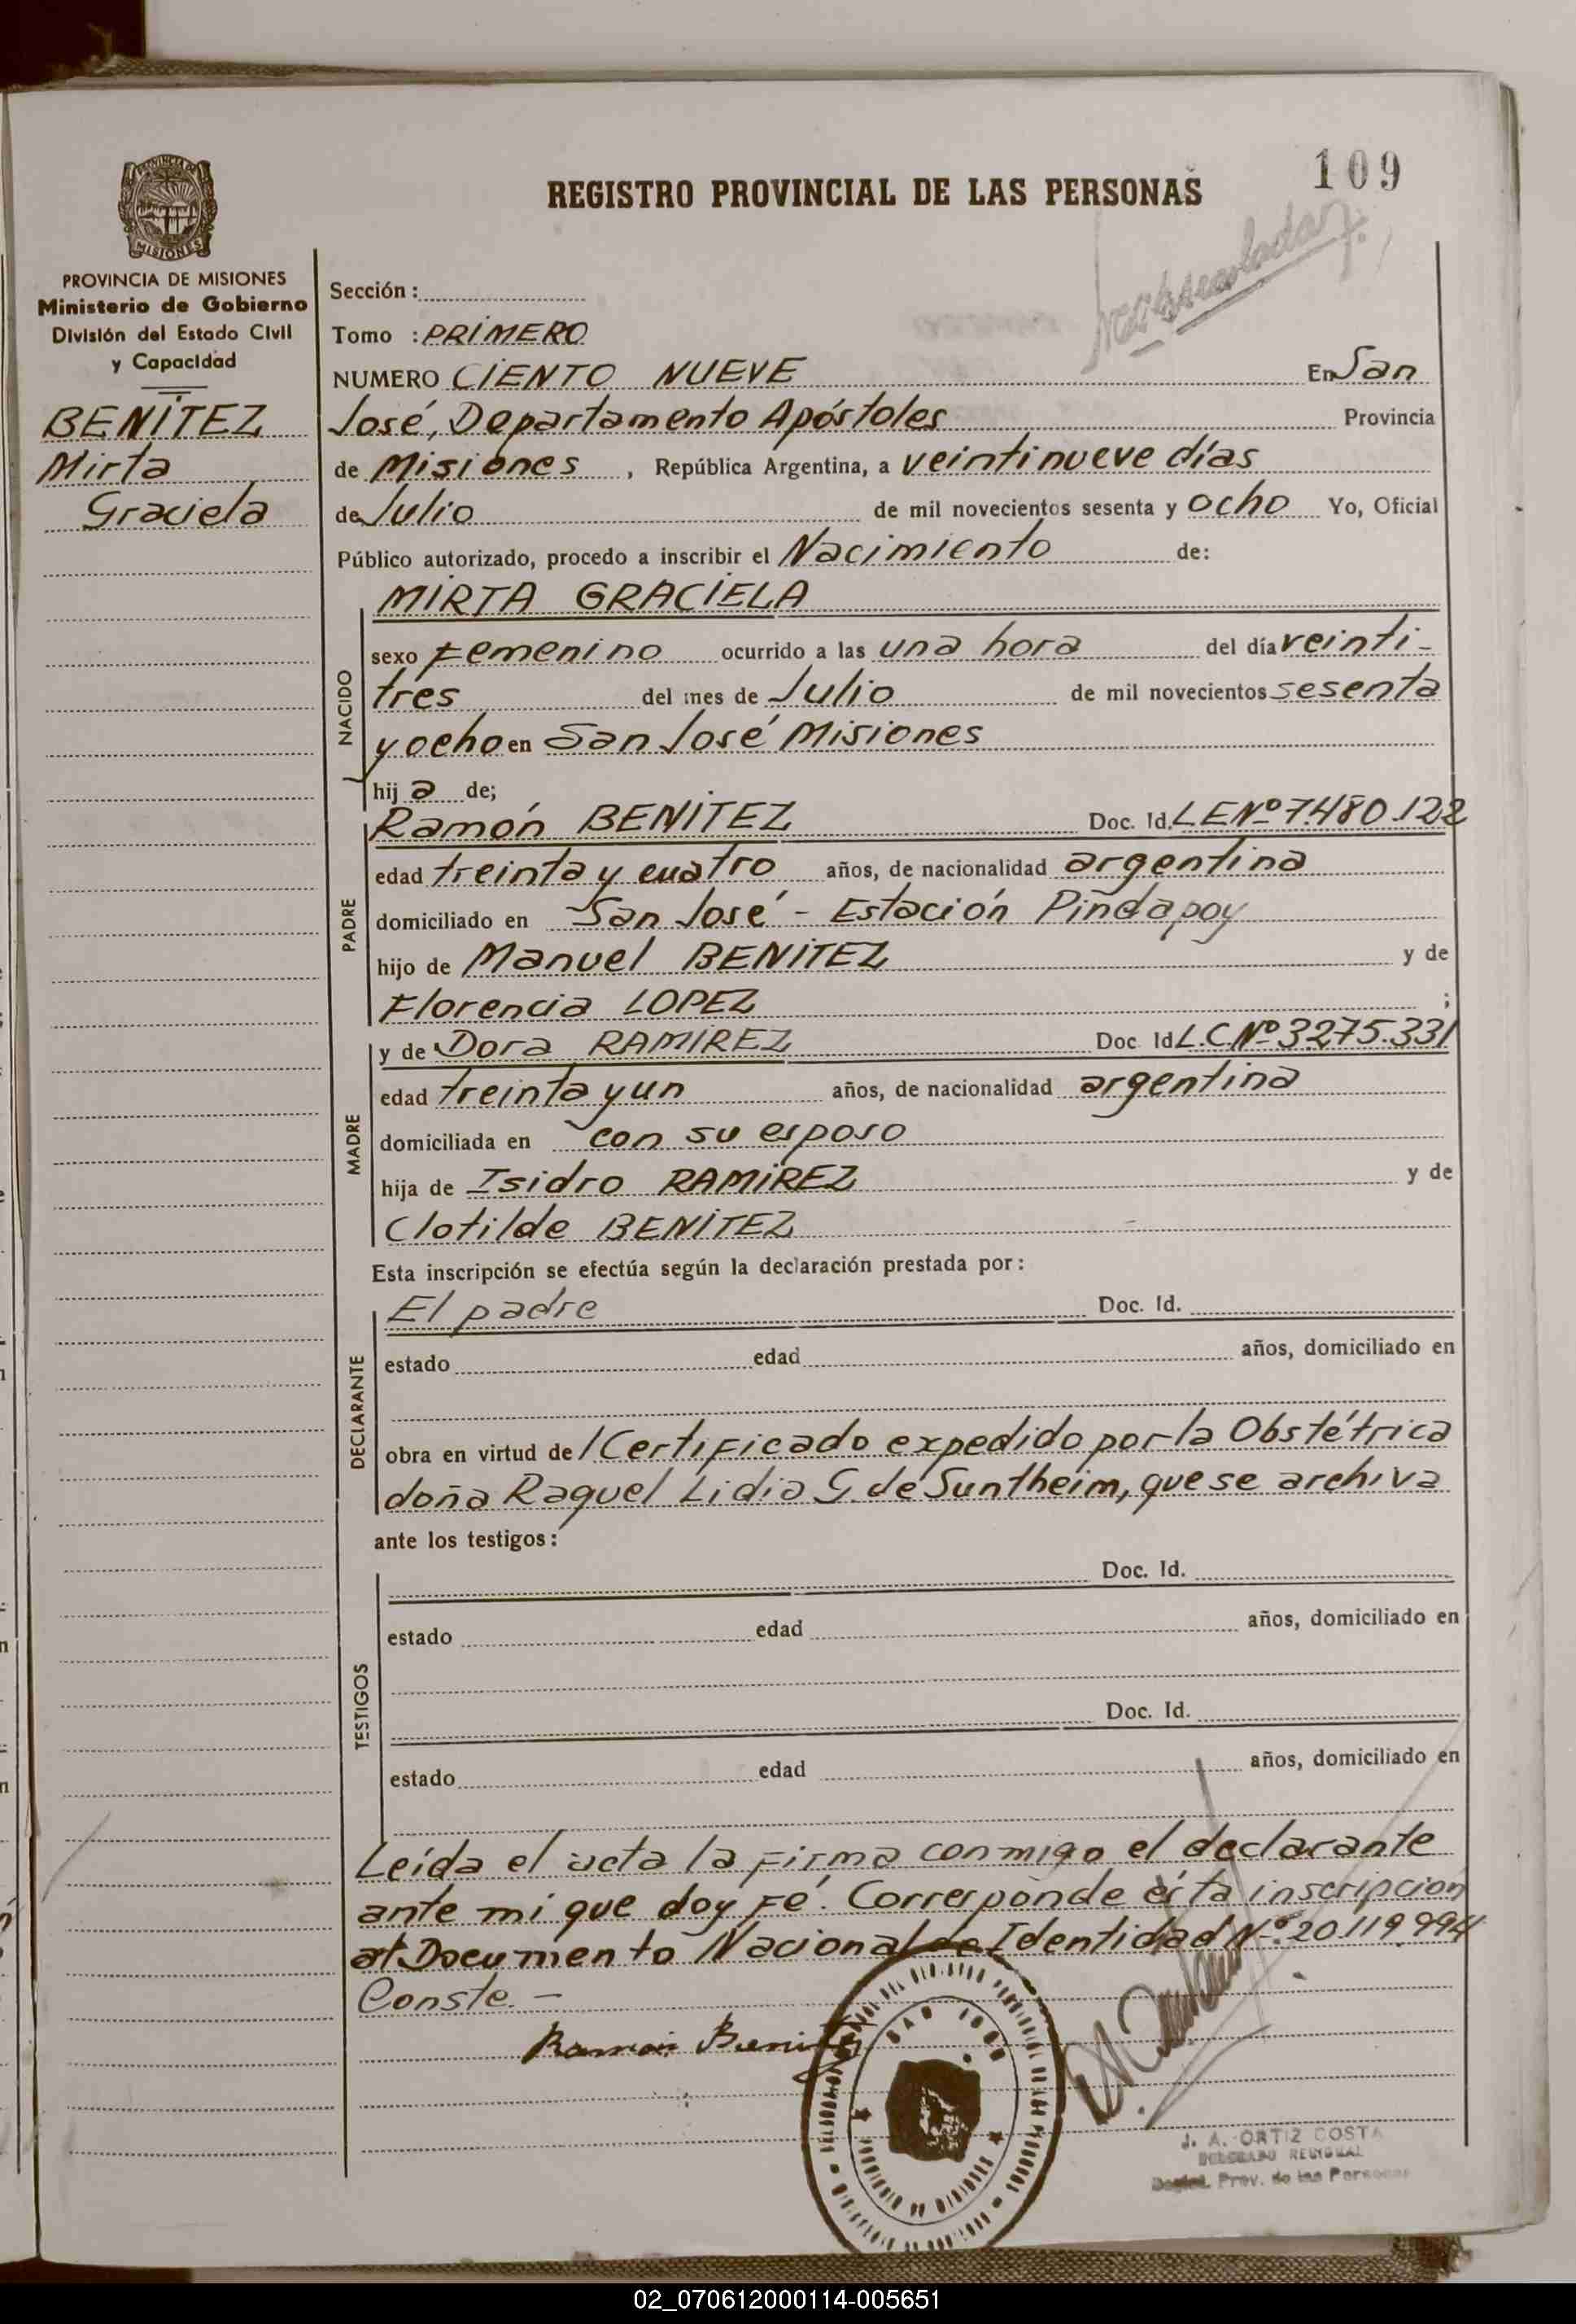 109
REGISTRO PROVINCIAL DE LAS PERSONAS
PROVINCIA DE MISIONES
Ministerio de Gobierno
División del Estado Civil
y Capacidad
BENÍTEZ
Mirta
Graciela
Sección :
Tomo : PRIMERO
NUMERO CIENTO NUEVE En San
José, Departamento Apóstoles Provincia
de Misiones , República Argentina, a veintinueve días
de Julio de mil novecientos sesenta y ocho Yo, Oficial
Público autorizado, procedo a inscribir el Nacimiento de:
MIRTA GRACIELA
NACIDO
sexo Femenino ocurrido a las una hora del día veinti-
tres del mes de Julio de mil novecientos sesenta
y ocho en San José Misiones
hij a de;
PADRE
Ramón BENÍTEZ Doc. Id. L E Nº 7.480.122
edad treinta y cuatro años, de nacionalidad argentina
domiciliado en San José - Estación Pindapoy
hijo de Manuel BENITEZ y de
Florencia LOPEZ ;
MADRE
y de Dora RAMIREZ Doc Id L.C. Nº 3.275.331
edad treinta y un años, de nacionalidad argentina
domiciliada en con su esposo
hija de Isidro RAMIREZ y de
Clotilde BENITEZ
Esta inscripción se efectúa según la declaración prestada por :
DECLARANTE
El padre Doc. Id.
estado edad años, domiciliado en
obra en virtud de / Certificado expedido por la Obstétrica
doña Raquel Lidia G. de Suntheim, que se archiva
ante los testigos :
TESTIGOS
Doc. Id.
estado edad años, domiciliado en
Doc. Id.
estado edad años, domiciliado en
Leída el acta la firma conmigo el declarante
ante mí que doy fé. Corresponde ésta inscripción
al Documento Nacional de Identidad Nº 20.119.994
Conste. -
Ramón Benitez
SAN JOSE
J. A. ORTIZ COSTA
DELEGADO REGIONAL
Prov. de las Personas
02_070612000114-005651